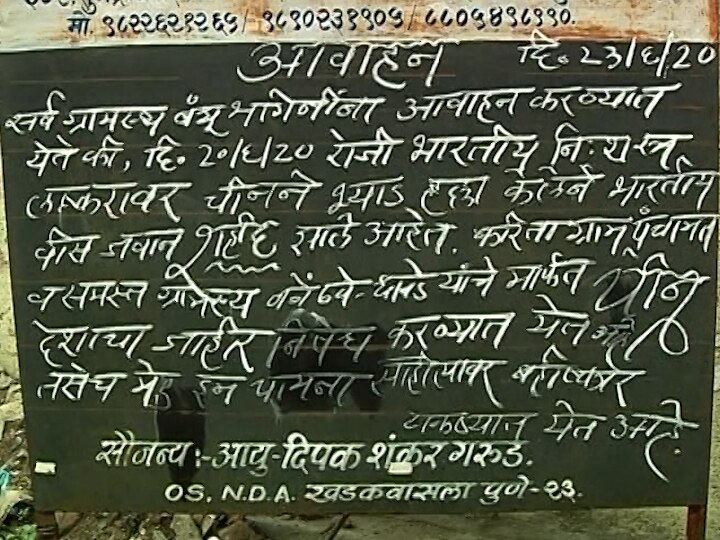 मो. ९८२२६२१२६५/ ९८९०२३१९०५/ ८८०५४९८९९०.
आवाहन दि. 23/६/20
सर्व ग्रामस्थ बंधू भगिनींना आवाहन करण्यात
येते की, दि. 20/६/20 रोजी भारतीय नि:शस्त्र
लष्करावर चीनने भ्याड हल्ला केलेने भारतीय
वीस जवान शहीद झाले आहेत. करिता ग्राम पंचायत
व समस्त ग्रामस्थ यांचे मार्फत चीन
देशाचा जाहीर निषेध करण्यात येत आहे
तसेच मेड इन चायना साहित्यावर बहिष्कार
टाकण्यात येत आहे.
सौजन्य :- आयु- दिपक शंकर गरुड.
OS, N.D.A. खडकवासला पुणे-२३.